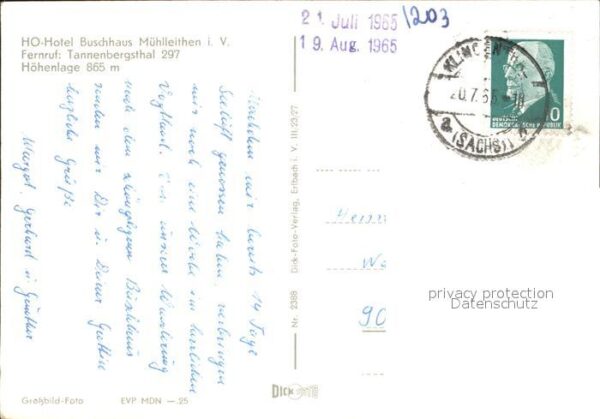 HO-Hotel Buschhaus Mühlleithen i. V.
Fernruf: Tannenbergsthal 297
Höhenlage 865 m
21. Juli 1965
19. Aug. 1965
1203
KLINGENTHAL
20.7.65
a (SACHS)
DEMOKRATISCHE REPUBLIK
Nachdem wir bereits 14 Tage
Seeluft genossen haben, verbringen
wir noch eine Woche im herrlichen
Vogtland. Von unserer Wanderung
nach dem Buschhaus
senden wir Dir u. Deiner Gattin
herzliche Grüße
Margot, Gerhard u. Günther
Nr. 2388 Dick-Foto-Verlag, Erlbach i. V. III-23/27
Herrn
90
privacy protection
Datenschutz
DICK FOTO
Großbild-Foto EVP MDN —.25